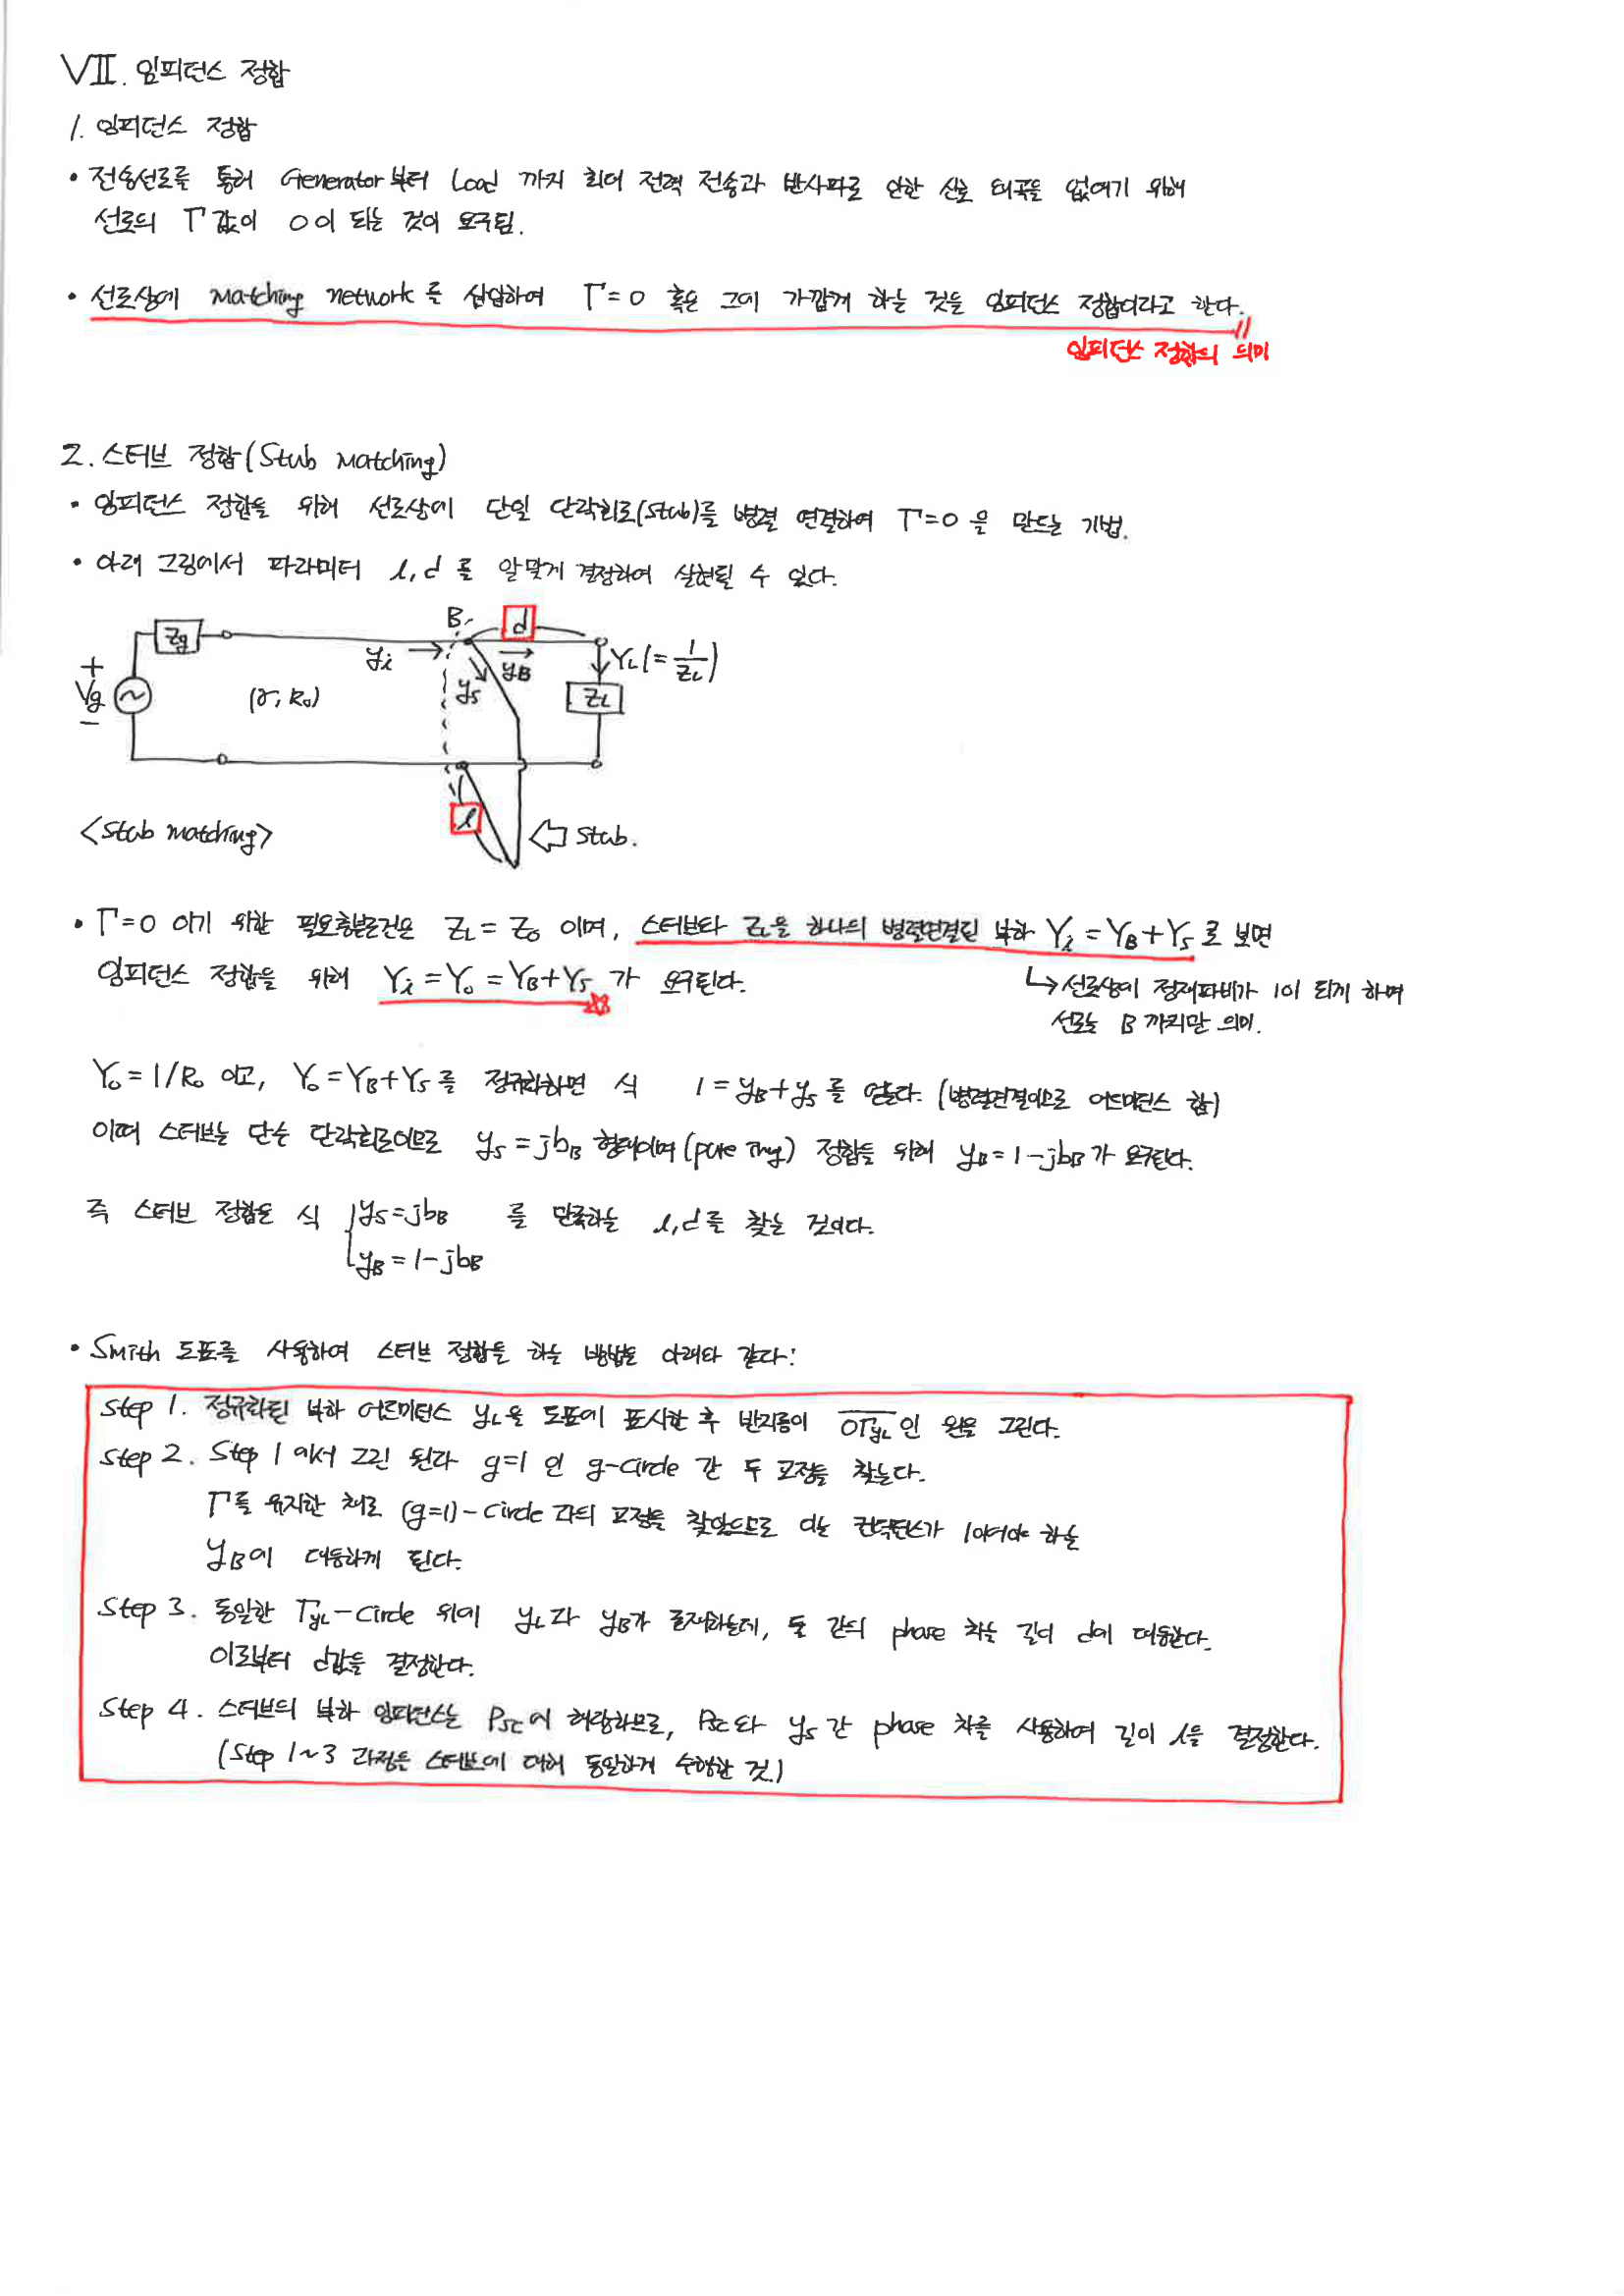 VII. 임피던스 정합
1. 임피던스 정합
• 전송선로를 통해 Generator부터 Load 까지 최대 전력 전송과 반사파로 인한 신호 왜곡을 없애기 위해
선로의 Γ값이 0이 되는 것이 요구됨.
• 선로상에 matching network를 삽입하여 Γ=0 혹은 그에 가깝게 하는 것을 임피던스 정합이라고 한다.
임피던스 정합의 의미
2. 스터브 정합(Stub matching)
• 임피던스 정합을 위해 선로상에 단일 단락회로(stub)를 병렬 연결하여 Γ=0 을 만드는 기법.
• 아래 그림에서 파라미터 l, d 를 알맞게 결정하여 실현될 수 있다.
B
d
Zg
yi
yB
YL(=1/ZL)
+
Vg
-
(γ, R₀)
ys
ZL
l
<Stub matching>
Stub.
• Γ=0 이기 위한 필요충분조건은 ZL = Z₀ 이며, 스터브와 ZL을 하나의 병렬연결된 부하 Yi = YB + YS 로 보면
임피던스 정합을 위해 Yi = Y₀ = YB + YS 가 요구된다.
↳ 선로상의 정재파비가 1이 되게 하며
선로는 B 까지만 의미.
Y₀ = 1/R₀ 이고, Y₀ = YB + YS 를 정규화하면 식 1 = yB + ys 를 얻는다. (병렬연결이므로 어드미턴스 합)
이때 스터브는 단순 단락회로이므로 ys = jbB 형태이며 (pure Img) 정합을 위해 yB = 1 - jbB 가 요구된다.
즉 스터브 정합은 식 { ys = jbB 를 만족하는 l, d 를 찾는 것이다.
yB = 1 - jbB
• Smith 도표를 사용하여 스터브 정합을 하는 방법은 아래와 같다:
Step 1. 정규화된 부하 어드미턴스 yL을 도표에 표시한 후 반지름이 OΓyL 인 원을 그린다.
Step 2. Step 1 에서 그린 원과 g=1 인 g-circle 간 두 교점을 찾는다.
Γ를 유지한 채로 (g=1)-circle 과의 교점을 찾았으므로 이는 컨덕턴스가 1이어야 하는
yB에 대응하게 된다.
Step 3. 동일한 ΓyL-circle 위에 yL과 yB가 존재하는데, 둘 간의 phase 차는 길이 d에 대응한다.
이로부터 d값을 결정한다.
Step 4. 스터브의 부하 임피던스는 Psc에 해당하므로, Psc와 ys 간 phase 차를 사용하여 길이 l을 결정한다.
(Step 1~3 과정은 스터브에 대해 동일하게 수행한 것.)